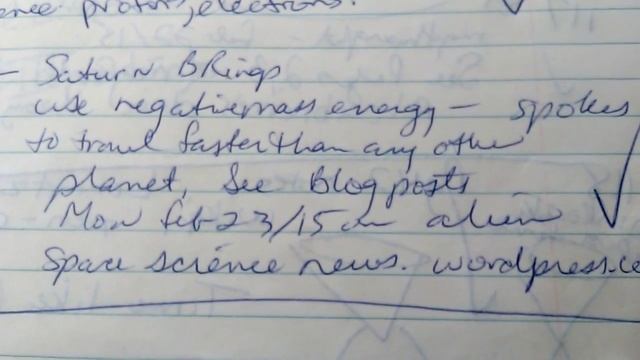 ence protons, elections.
- Saturn B Rings
use negative mass energy - spokes
to travel faster than any other
planet, See Blog posts
Mon Feb 23/15 on alien
Space science news. wordpress.co